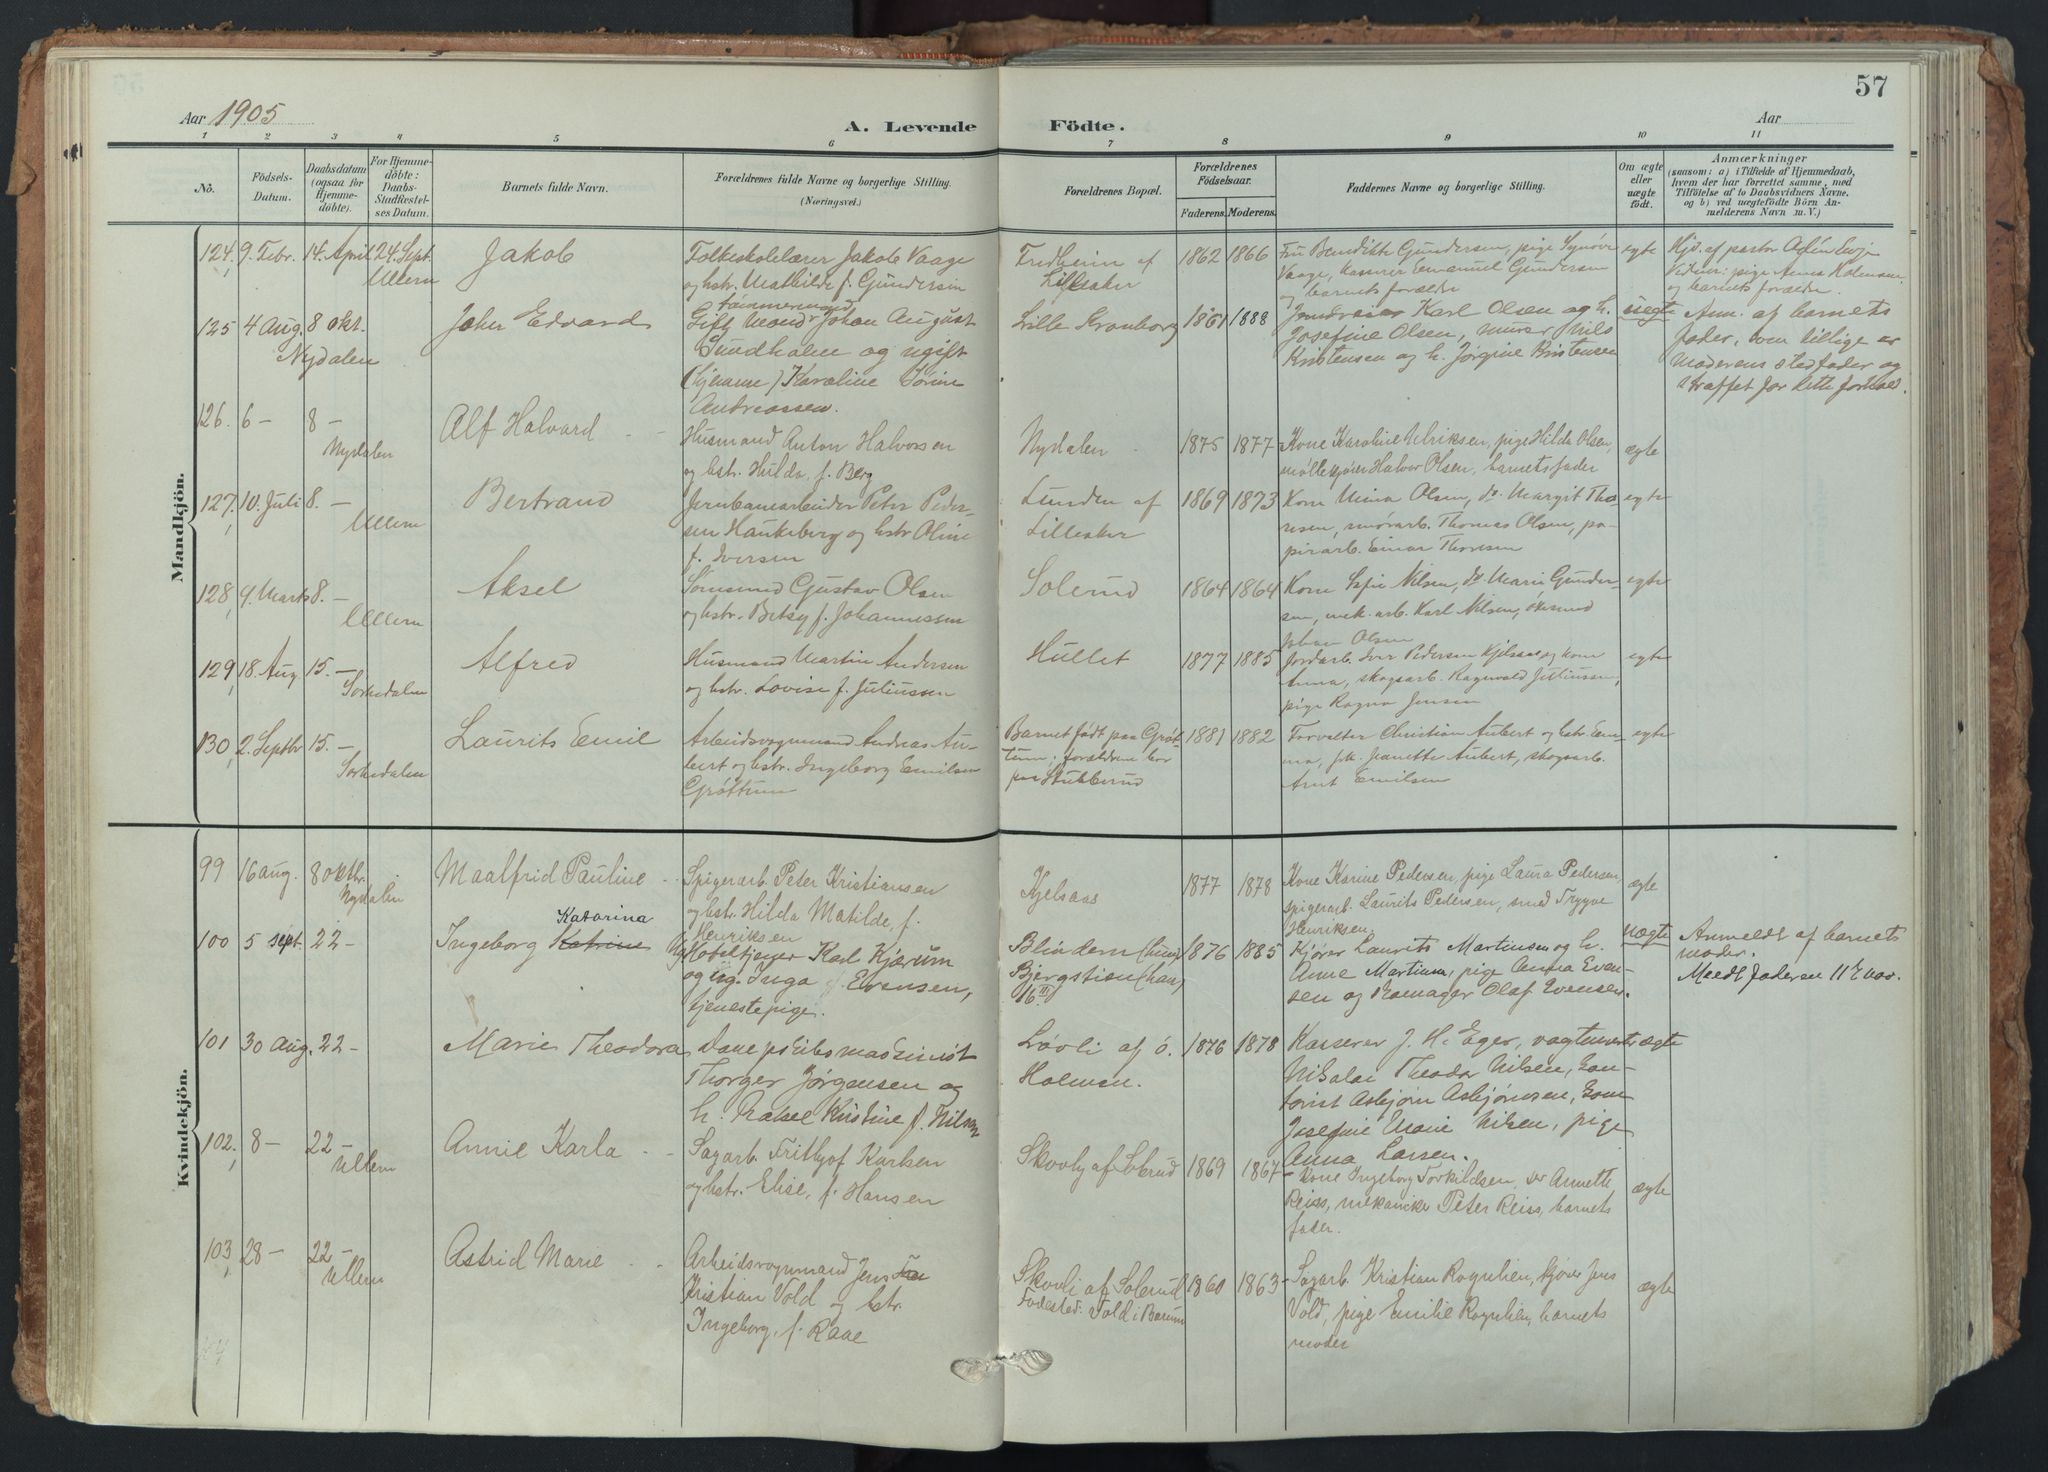 57
Aar 1905
A. Levende Födte.
Aar
1 2 3 4 5 6 7 8 9 10 11
No.
Födsels-
Datum.
Daabsdatum
(ogsaa for
Hjemme-
döbte).
For Hjemme-
döbte:
Daabs-
Stadfæstel-
ses Datum.
Barnets fulde Navn.
Forældrenes fulde Navne og borgerlige Stilling.
(Næringsvei.)
Forældrenes Bopæl.
Forældrenes
Födselsaar.
Faderens. Moderens.
Faddernes Navne og borgerlige Stilling.
Om ægte
eller
uægte
født.
Anmærkninger
(saasom: a) i Tilfælde af Hjemmedaab,
hvem der har forrettet samme, med
Tilföielse af to Daabsvidners Navne,
og b) ved uægtefödte Börn An-
melderens Navn m. V.)
Mandkjön.
124, 9. Febr. 14. April 24. Sept.
Ullern
Jakob
Folkeskolelærer Jakob Vaage
og hstr. Mathilde f. Gundersen
Fredheim af
Lilleaker
1862 1866
Fru Benedikte Gundersen, pige Synøve
Vaage, kasserer Emanuel Gundersen
og barnets forældre
egte
Hjd. af pastor
Vidner: pige Anna
og barnets forældre.
125 4 Aug. 8 okt.
Nydalen
Johan Edvard
tømmermand
Gift Johan August
Sundholm og ugift
(hjemme) Karoline
Andreassen.
Lille Kronborg
1861 1888
Karl Olsen og h.
Josefine Olsen, murer Nils
Kristensen og h. Jørgine Kristensen
uegte
Anm. af barnets
fader, som tillige er
moderens stedfader og
straffet for dette forhold.
126. 6 – 8 –
Nydalen
Alf Halvard
Husmand Anton Halvorsen
og hstr. Hulda, f. Berg
Nydalen
1875 1877
Kone Karoline Ulriksen, pige Hilda Olsen,
Halvor Olsen, barnets fader
ægte
127, 10. Juli 8. –
Ullern
Bertrand
Jernbanearbeider Peter Peder-
sen Haukeberg og hstr Oline
f. Iversen
Lunden af
Lilleaker
1869 1873
Kone Mina Olsen, do. Margit Tho-
resen, smørarb. Thomas Olsen, pa-
pirarb. Einar Thoresen
egte
128, 9. Marts 8. –
Ullern
Aksel
Gustav Olsen
og hstr. Betsy f. Johannessen
Solerud
1864 1864
Kone Nilsen, do Marie Gunder-
sen, mek. arb. Karl Nilsen,
Johan Olsen
egte
129, 18. Aug. 15. –
Sørkedalen
Alfred
Husmand Martin Andersen
og hstr. Lovise f. Juliussen
Hullet
1877 1885
Jordarb. Iver Pedersen Kjelsaas og kone
Anna, skogsarb. Ragnvald Juliussen,
pige Ragna Jensen
egte
130, 2. Septbr 15. –
Sørkedalen
Laurits Emil
Arbeidsvognmand Andreas Au-
bert og hstr. Ingeborg Emilsen
Grøttum
Barnet født paa Grøt-
tum; forældrene bor
paa Stubberud
1881 1882
Forvalter Christian Aubert og hstr. Em-
ma, frk. Jeanette Aubert, skogsarb.
Arnt Emilsen
egte
Kvindekjön.
99 16 aug. 8 oktbr.
Nydalen
Maalfrid Pauline
Spigerarb. Peter Kristiansen
og hstr. Hilda Matilde, f.
Henriksen
Kjelsaas
1877 1878
Kone Karine Pedersen, pige Laura Pedersen,
spigerarb. Laurits Pedersen, smed Trygve
Henriksen
ægte
100 5 sept. 22 –
Katarina
Ingeborg Katrine
Ug. Hoteltjener Karl Kjærum
og ug. Inga Evensen,
tjenestepige.
Blindern (hun)
Bjergstien (han)
16 III
1876 1885
Kjører Laurits Martinsen og h.
Anne Martinsen, pige Anna Even-
sen og Olaf Evensen.
uægte
Anmeldt af barnets
moder.
Meedt faderen 11/2 00.
101 30 Aug. 22 –
Marie Theodora
Thorger Jørgensen og
h. Kristine f. Nilsen
Løvli af ö.
Holmen.
1876 1878
Kasserer J. H. Eger,
Nikolai Theodor Nilsen, kon-
torist Asbjørn Asbjørnsen, kone
Josefine Marie Nilsen, pige
Anna Larsen.
ægte
102, 8 – 22 –
Ullern
Annie Karla
Sagarb. Frithjof Karlsen
og hstr. Elise, f. Hansen
Skovly af Solerud
1869 1867
Kone Ingeborg Torkildsen, do Annette
Reiss, mekaniker Peter Reiss, barnets
fader.
ægte
103, 28 – 22 –
Ullern
Astrid Marie
Arbeidsvognmand Jens
Kristian Vold og hstr.
Ingeborg, f. Raae
Skovli af Solerud
Fødested: Vold i Bærum
1860 1863
Sagarb. Kristian Rognlien, kjører Jens
Vold, pige Emilie Rognlien, barnets
moder
ægte
104